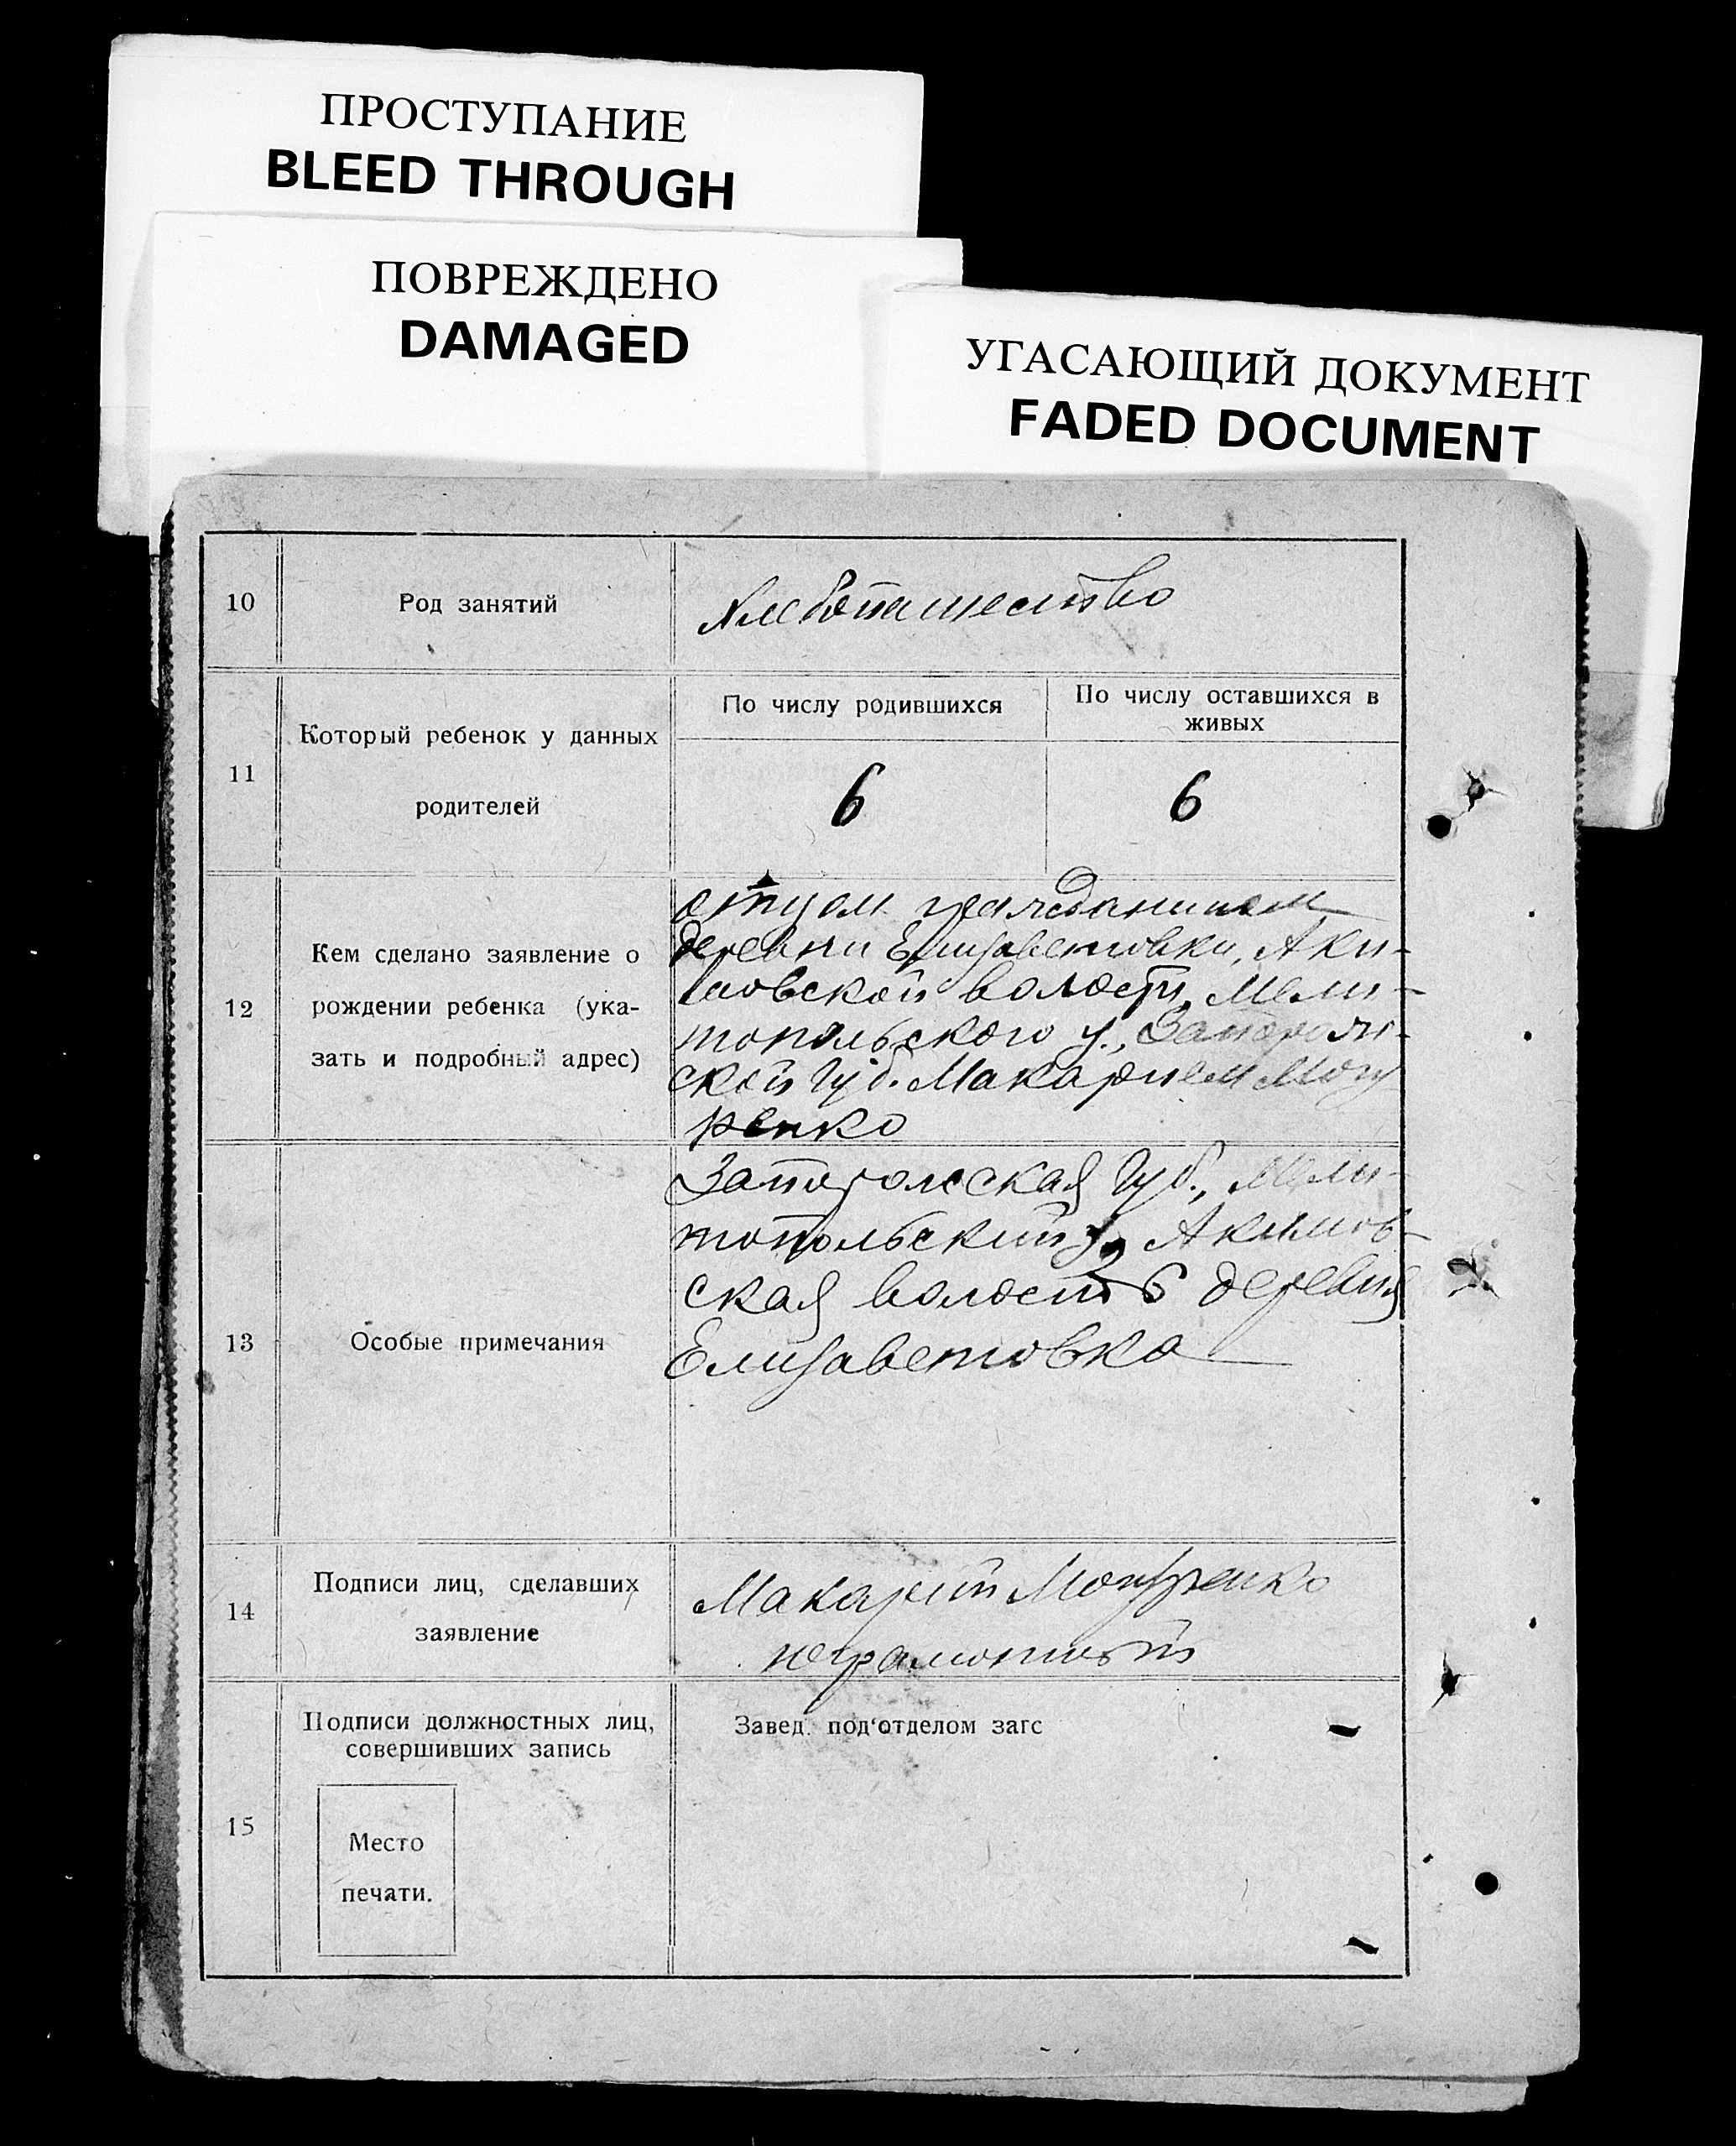 ПРОСТУПАНИЕ
BLEED THROUGH
ПОВРЕЖДЕНО
DAMAGED
УГАСАЮЩИЙ ДОКУМЕНТ
FADED DOCUMENT
10 Род занятий Хлебопашество
11 Который ребенок у данных родителей
По числу родившихся
По числу оставшихся в живых
6 6
12 Кем сделано заявление о
рождении ребенка (ука-
зать и подробный адрес)
отцом гражданином
деревни Елизаветовки, Аки-
мовской волости, Мели-
топольского у., Запорож-
ской губ. Макарием
ренко
13 Особые примечания
Запорожская губ., Мели-
топольский у, Акимов-
ская волость деревня
Елизаветовка
14 Подписи лиц, сделавших
заявление
Макарий
неграмотный
15 Подписи должностных лиц,
совершивших запись
Место
печати.
Завед. под'отделом загс